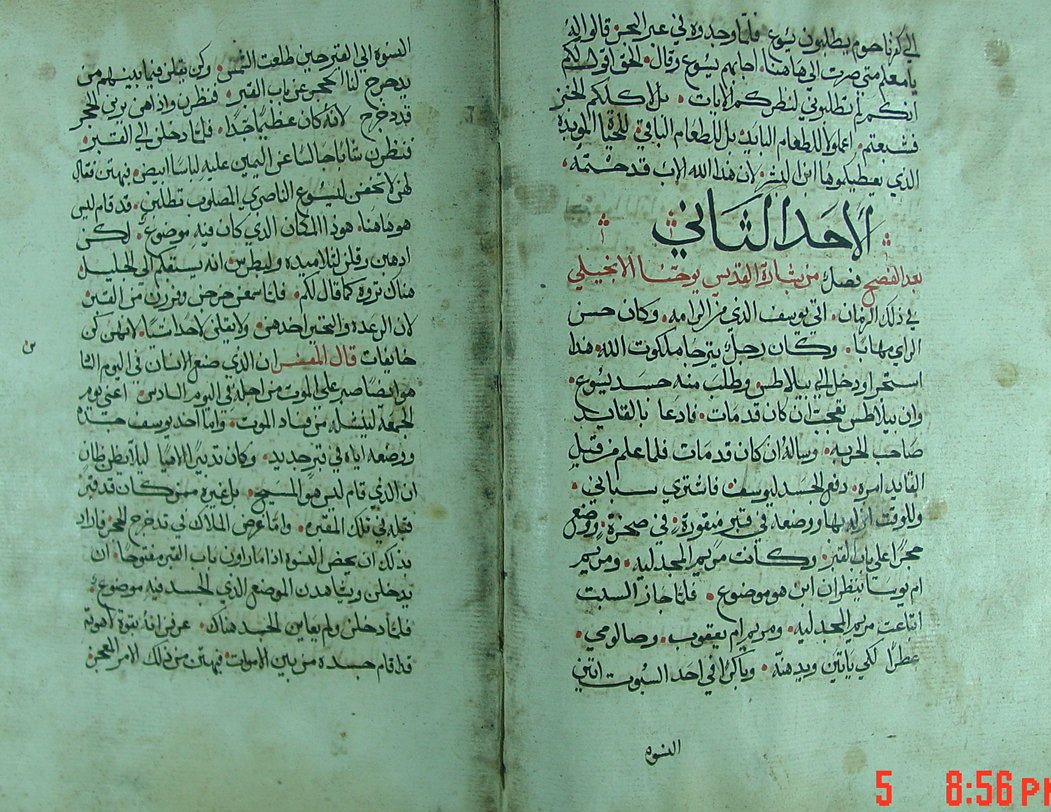 الي كفرناحوم يطلبون يسوع فلما وجدوه في عبر البحر قالوا له
يا معلم متي صرت الي هاهنا. اجابهم يسوع وقال. الحق اقول لكم
انكم لم تطلبوني لنظركم الايات. بل لاكلكم الخبز
فشبعتم. اعملوا لا للطعام البايد بل للطعام الباقي للحياة المويدة
الذي يعطيكموها ابن البشر. لان هذا الله الاب قد ختمه.
الاحد الثاني
بعد الفصح فصل من بشارة القديس يوحنا الانجيلي
في ذلك الزمان. اتي يوسف الذي من الرامه. وكان حسن
الراي بهابا. وكان رجل يترجا ملكوت الله. هذا
استجرا ودخل الي بيلاطس وطلب منه جسد يسوع.
وان بيلاطس تعجب ان كان قد مات. فادعا بالقايد
صاحب الحربه. وساله ان كان قد مات فلما علم من قبل
القايد امره. دفع الجسد ليوسف فاشتري سباني.
وللوقت انزله بها ووضعه في قبر منقورة. في صخرة. ووضع
حجرا علي باب القبر. وكانت مريم المجدليه. ومريم
ام يوسا تنظران اين هو موضوع. فلما جاز السبت
ابتاعت مريم المجدليه. ومريم ام يعقوب. وصالومي.
عطرا لكي ياتين ويدهنه. وباكرا في احد السبوت اتين
النسوه
النسوه الي القبر حين طلعت الشمس. وكن يقلن فيما بينهم من
يدحرج لنا الحجر عن باب القبر. فنظرن واذا هن يرين الحجر
قد دحرج لانه كان عظيما جدا. فلما دخلن الي القبر.
فنظرن شابا جالسا عن اليمين عليه لباسا ابيض. فبهتن فقال
لهن لا تخفن ليسوع الناصري المصلوب تطلبن. قد قام ليس
هو هاهنا. هوذا المكان الذي كان فيه موضوع. لكن
اذهبن وقلن لتلاميده ولبطرس انه يسبقكم الي الجليل.
هناك تروه كما قال لكم. فلما سمعن خرجن وفررن من القبر
لان الرعده والتحير اخدهن. ولا يقلن لاحد شيا. لانهن كن
خايفات قال المفسر ان الذي صنع الانسان في اليوم الثا
هو ايضا صبر علي الموت من اجله في اليوم السادس. اعني يوم
الجمعه لينشله من فساد الموت. واما اخد يوسف جسده
ووضعه اياه في قبر جديد. وكان تدبير الاهيا ليلا يظن ظان
ان الذي قام ليس هو المسيح. بل غيره ممن كان قد قبر
قبله في تلك المقبره. واما غرض الملاك في تدحرج الحجر فاراد
بذلك ان بعض النسوة اذا ما راون باب القبر مفتوحا. ان
يدخلن ويشاهدن الموضع الذي الجسد فيه موضوع.
فلما دخلن ولم يعاين الجسد هناك. عرفن انه بقوة لاهوته
قد اقام جسده من بين الاموات. فبهتن من ذلك الامر المعجز
5 8:56 PM